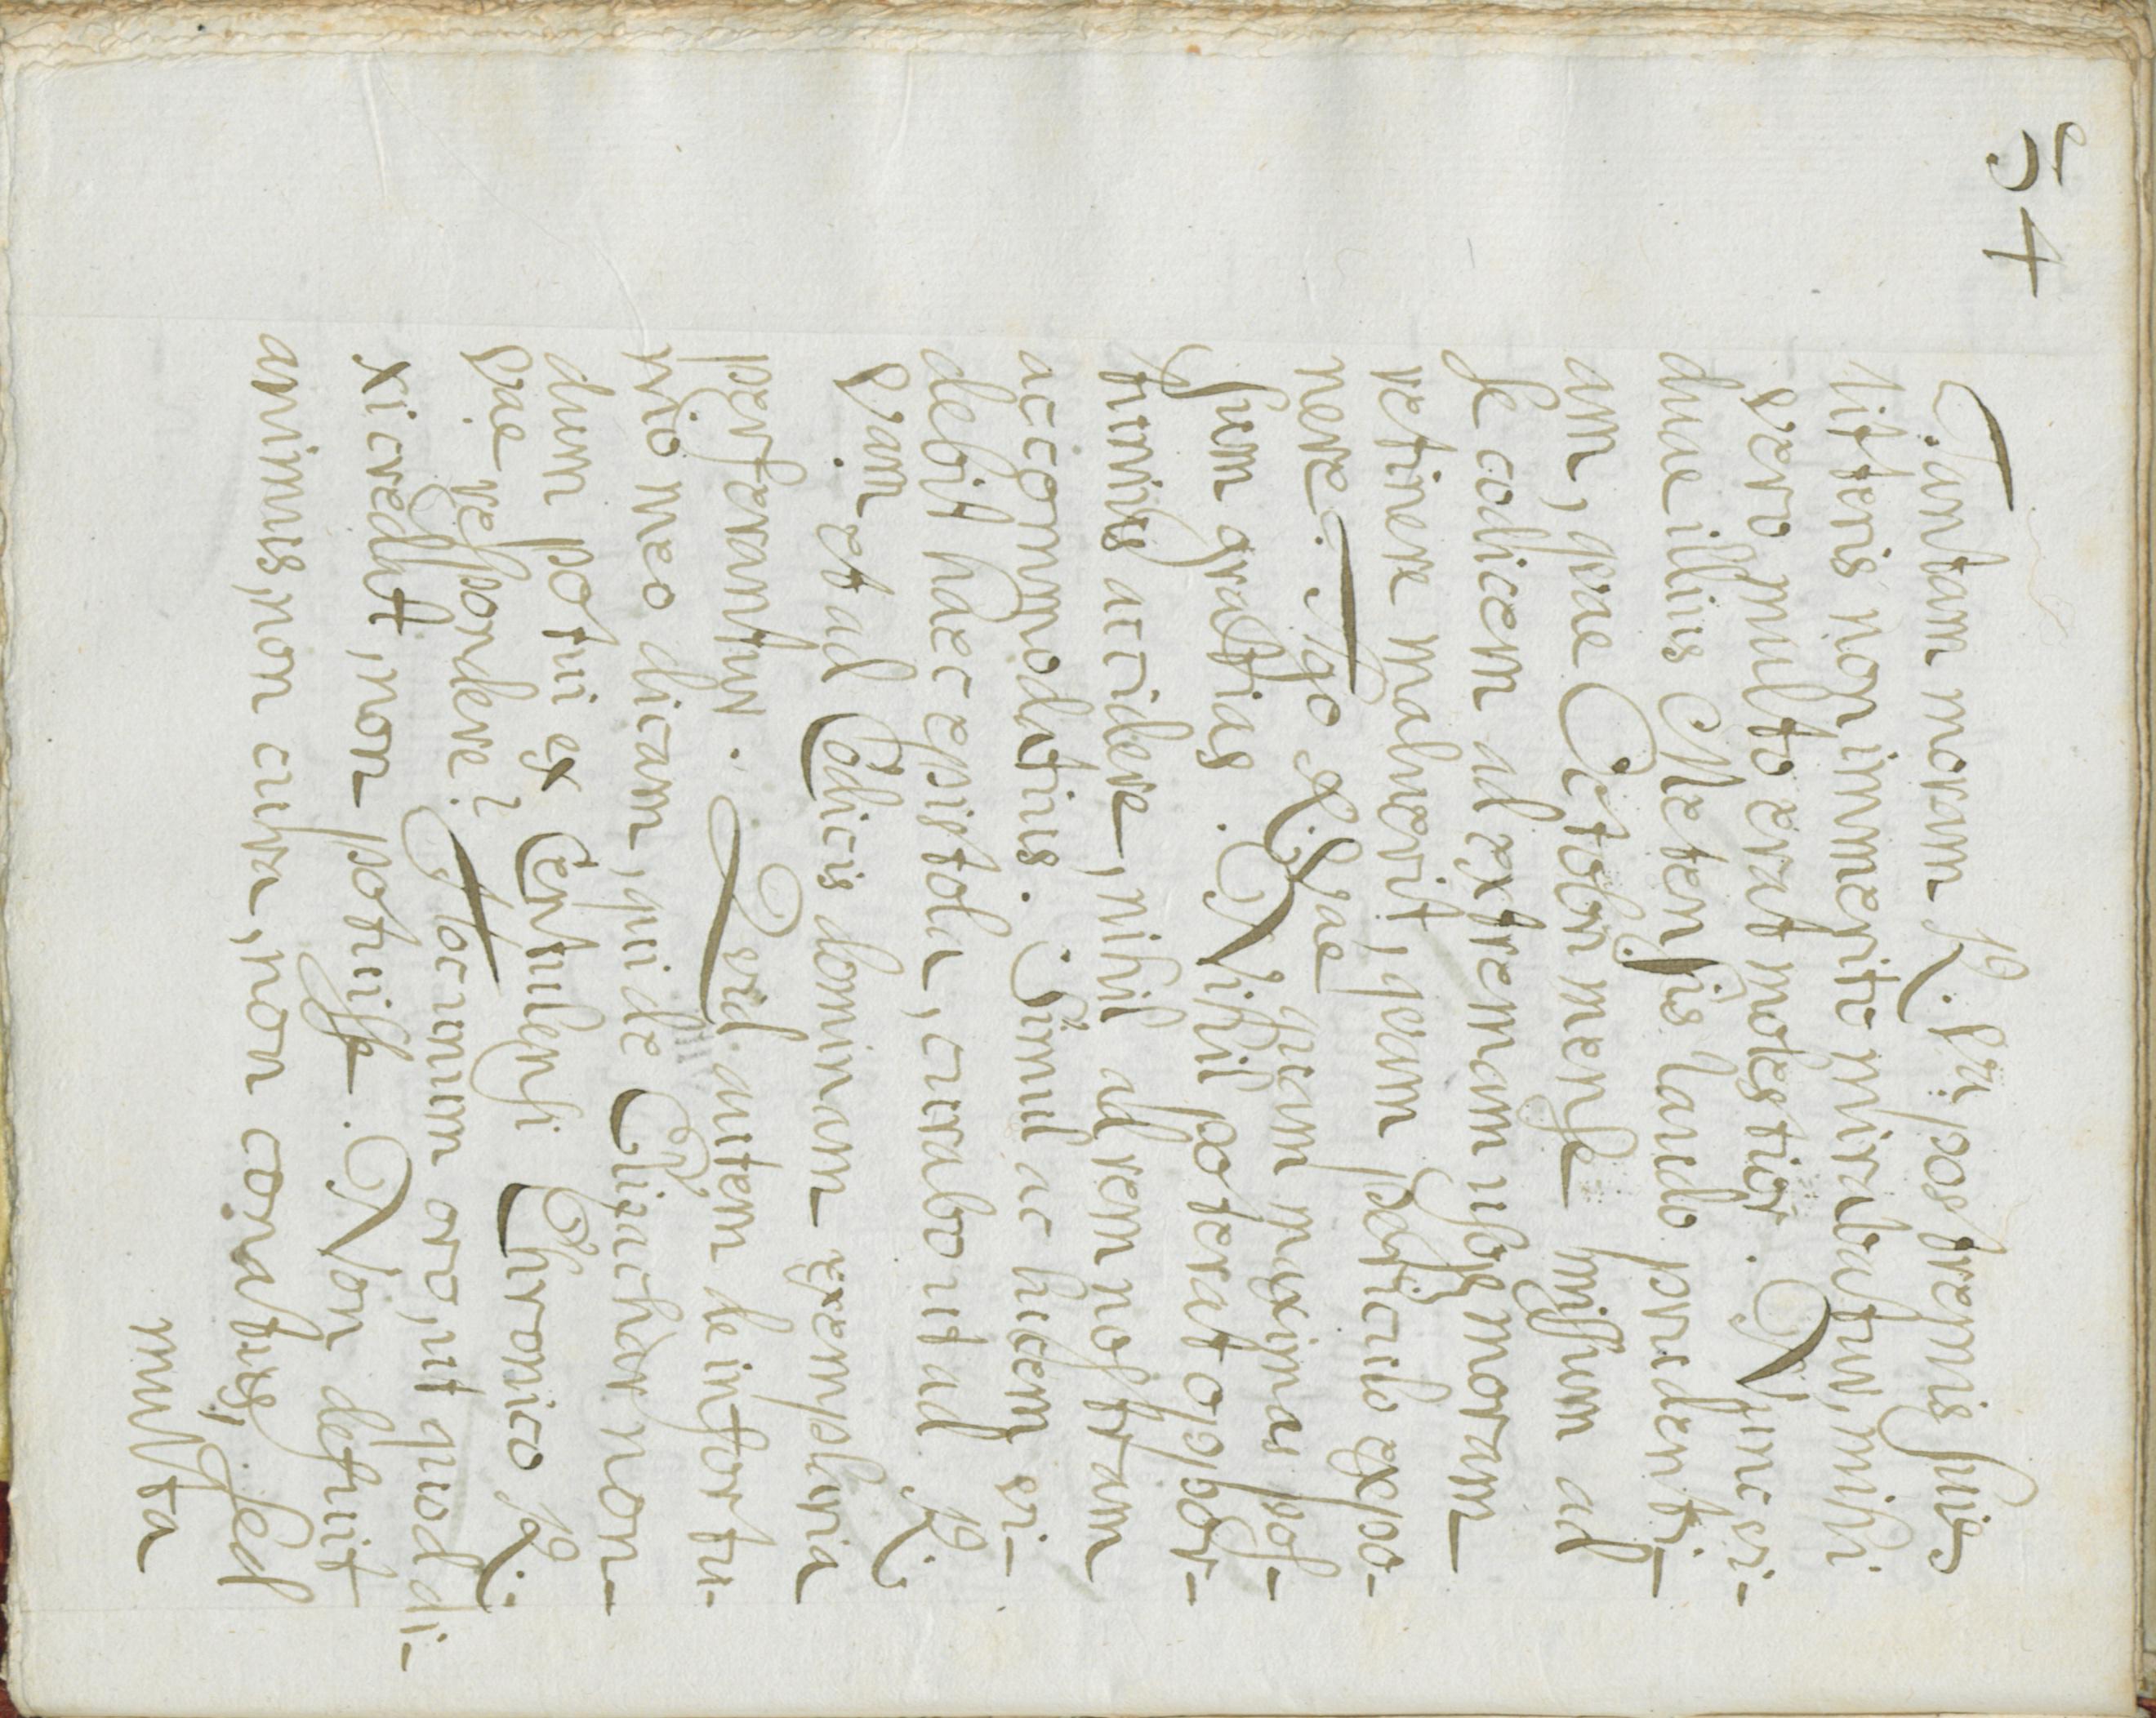 54
Tantam moram R. Vrã postremis suis
litteris non immerito mirabatur, mihi
vero multo erat molestior. Nunc vi-
duae illius Metensis laudo prudenti-
am, quae Octobri mense missum ad
se codicem ad extremam usque moram
retinere maluerit, quam periculo expo-
nere. Ago R. Vrae quam maximas pos-
sum gratias. Nihil poterat oppor-
tunius accidere, nihil ad rem nostram
accommodatius. Simul ac lucem vi-
debit haec epistola, curabo ut ad R.
Vram et ad Codicis dominam exemplaria
perferantur. Quid autem de infortu-
nio meo dicam, qui de Elisachar non-
dum potui ex Centulensi Chronico R.
Vrae respondere? Hoc unum oro, ut quod di-
xi credat, non potuisse. Non defuit
animus, non cura, non conatus, sed
multa